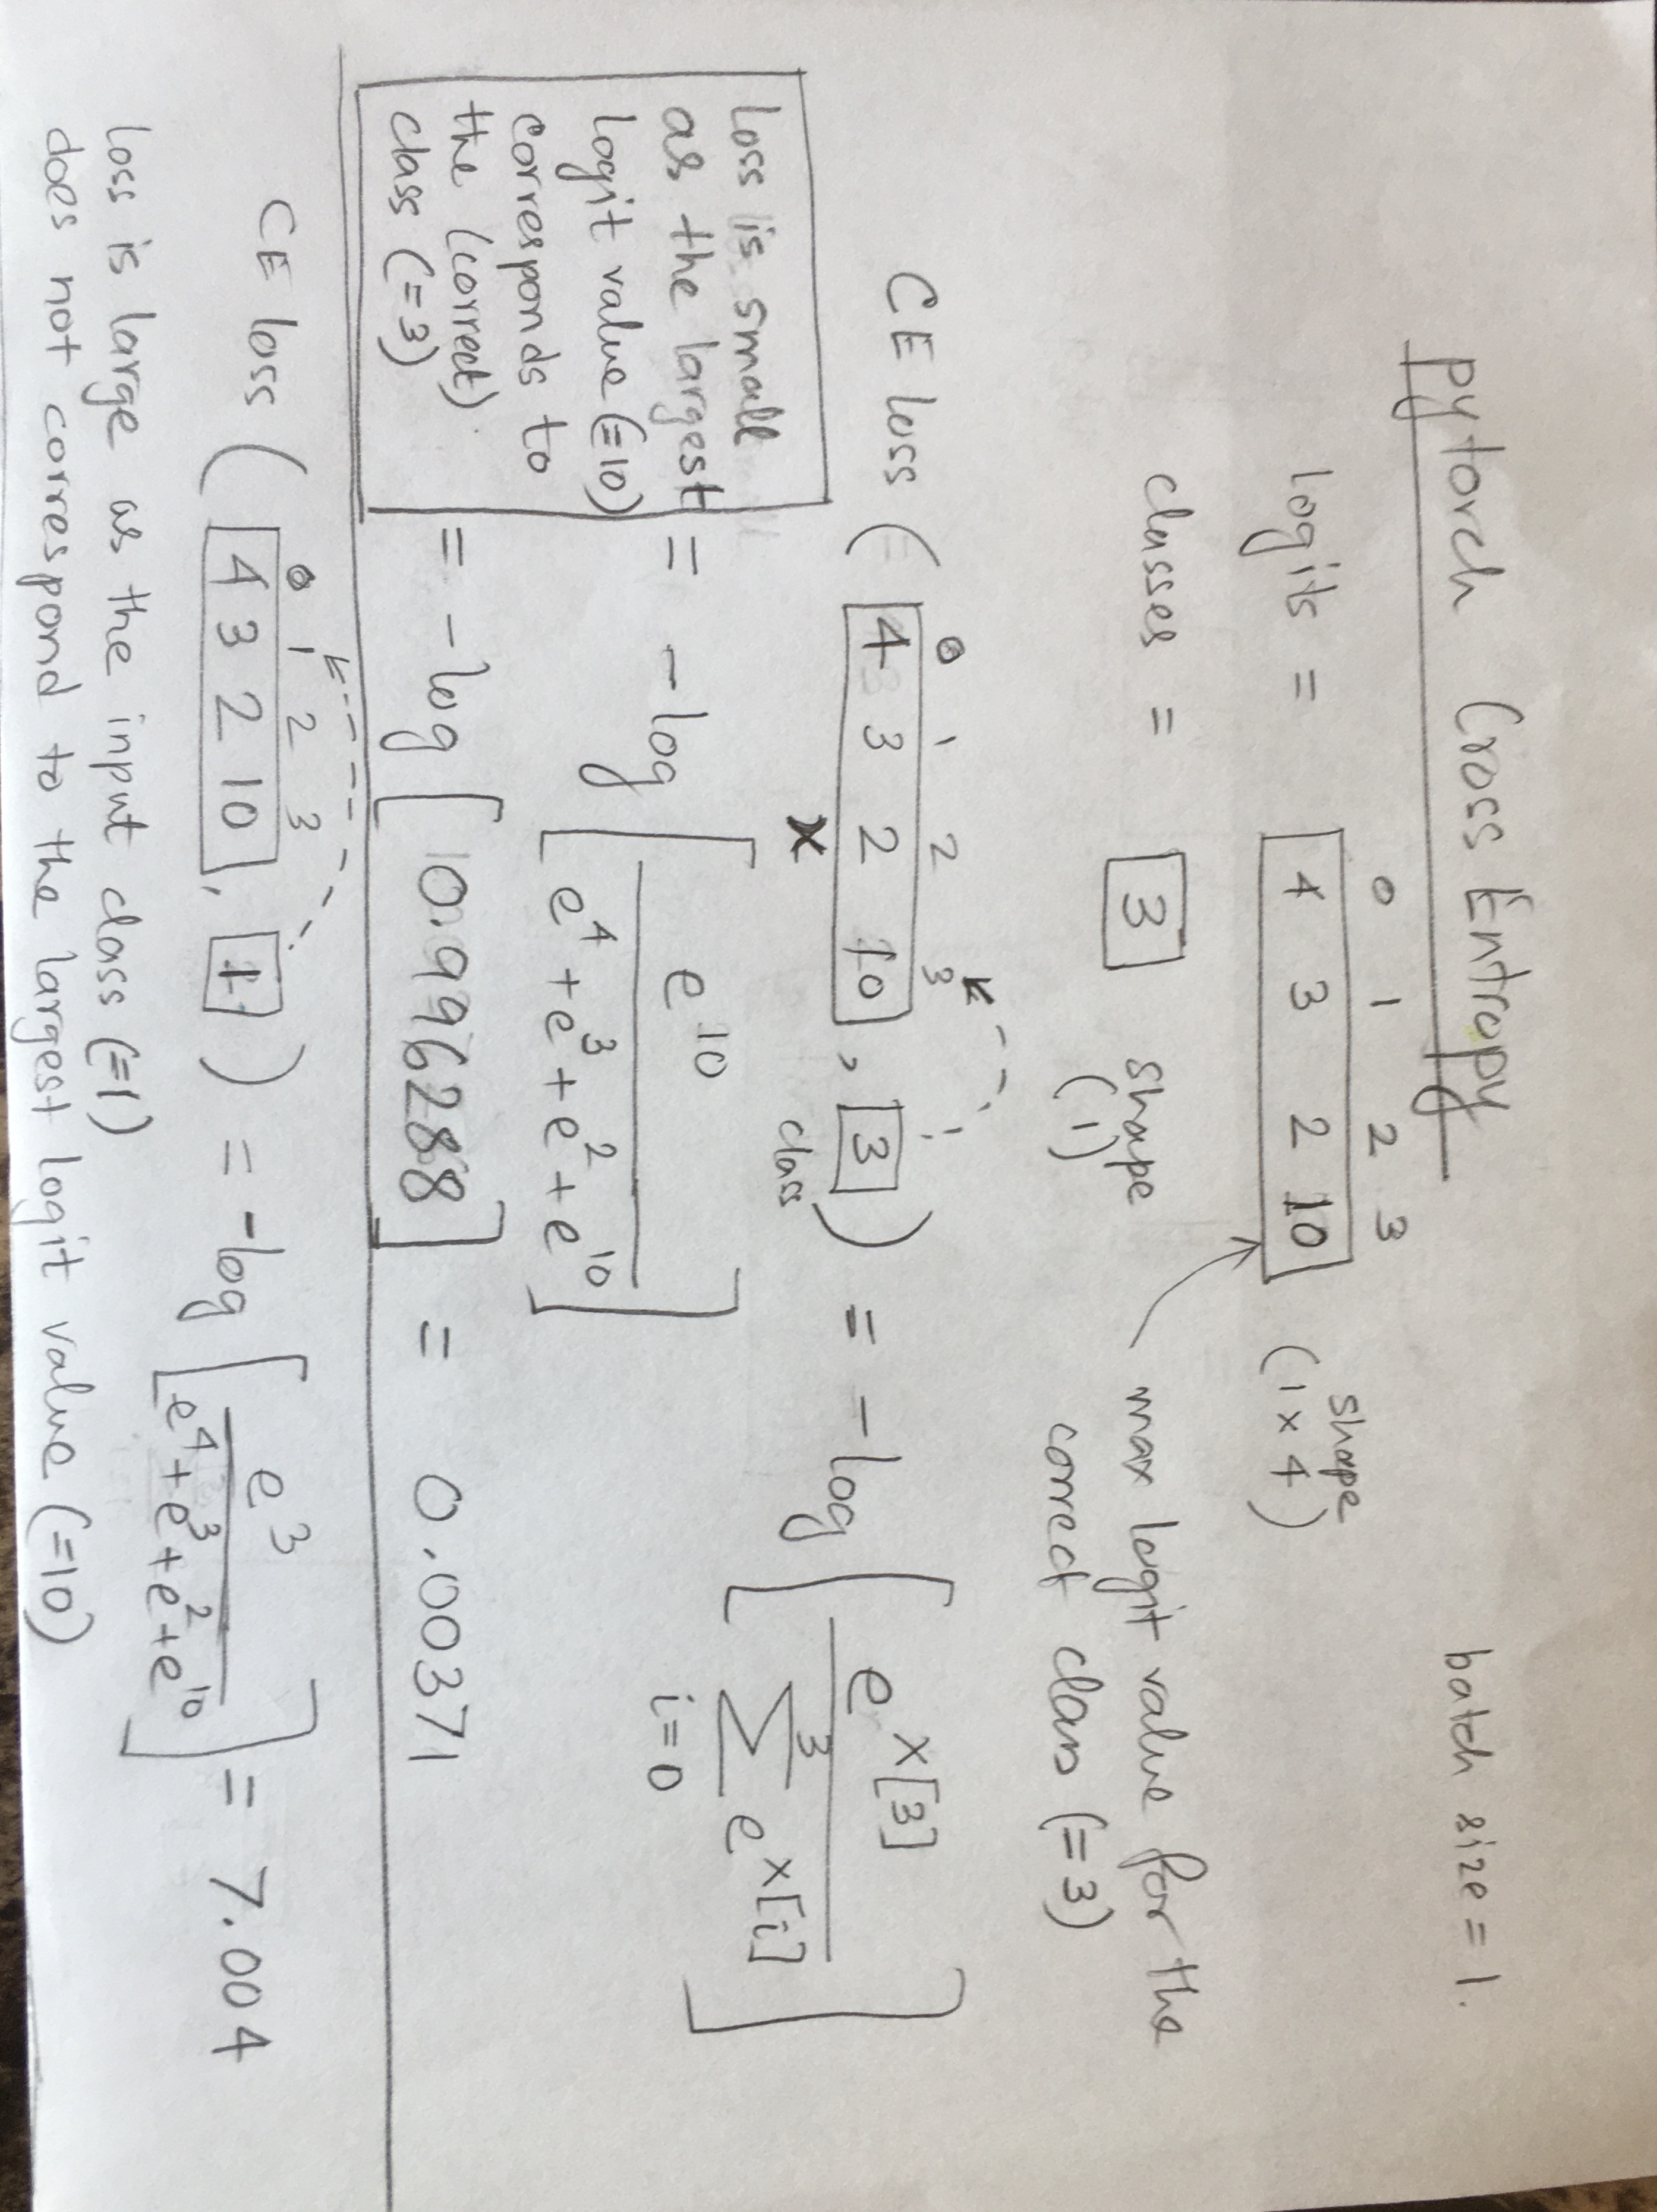 Pytorch Cross Entropy
batch size = 1.
0 1 2 3
logits = 4 3 2 10 shape (1 x 4)
classes = 3 shape (1)
max logit value for the
correct class (= 3)
0 1 2 3
CE loss ( 4 3 2 10 , 3 ) = -log [ e^x[3] / Σ^3_i=0 e^x[i] ]
x class
= -log [ e^10 / e^4 + e^3 + e^2 + e^10 ]
= -log [ 10.9996288 ] = 0.00371
Loss is small
as the largest
logit value (=10)
corresponds to
the (correct)
class (=3)
0 1 2 3
CE loss ( 4 3 2 10 , 1 ) = -log [ e^3 / e^4 + e^3 + e^2 + e^10 ] = 7.004
loss is large as the input class (=1)
does not correspond to the largest logit value (=10)